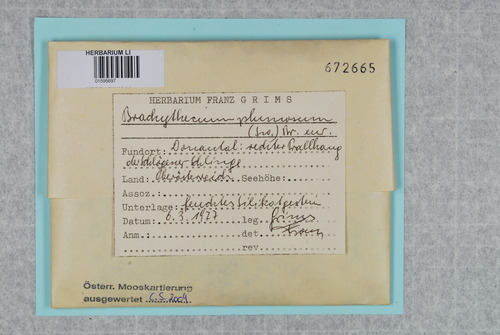 HERBARIUM LI
01595697
672665
HERBARIUM FRANZ GRIMS
Brachythecium plumosum
(Sw.) Br. eur.
Fundort: Donautal: rechter Prallhang
der Schlögener Schlinge
Land: Oberösterreich Seehöhe:
Assoz.
Unterlage: feuchtes Silikatgestein
Datum: 6.3.1977 leg. Grims
Anm.: det Franz
rev.
Österr. Mooskartierung
ausgewertet C.S. 2004